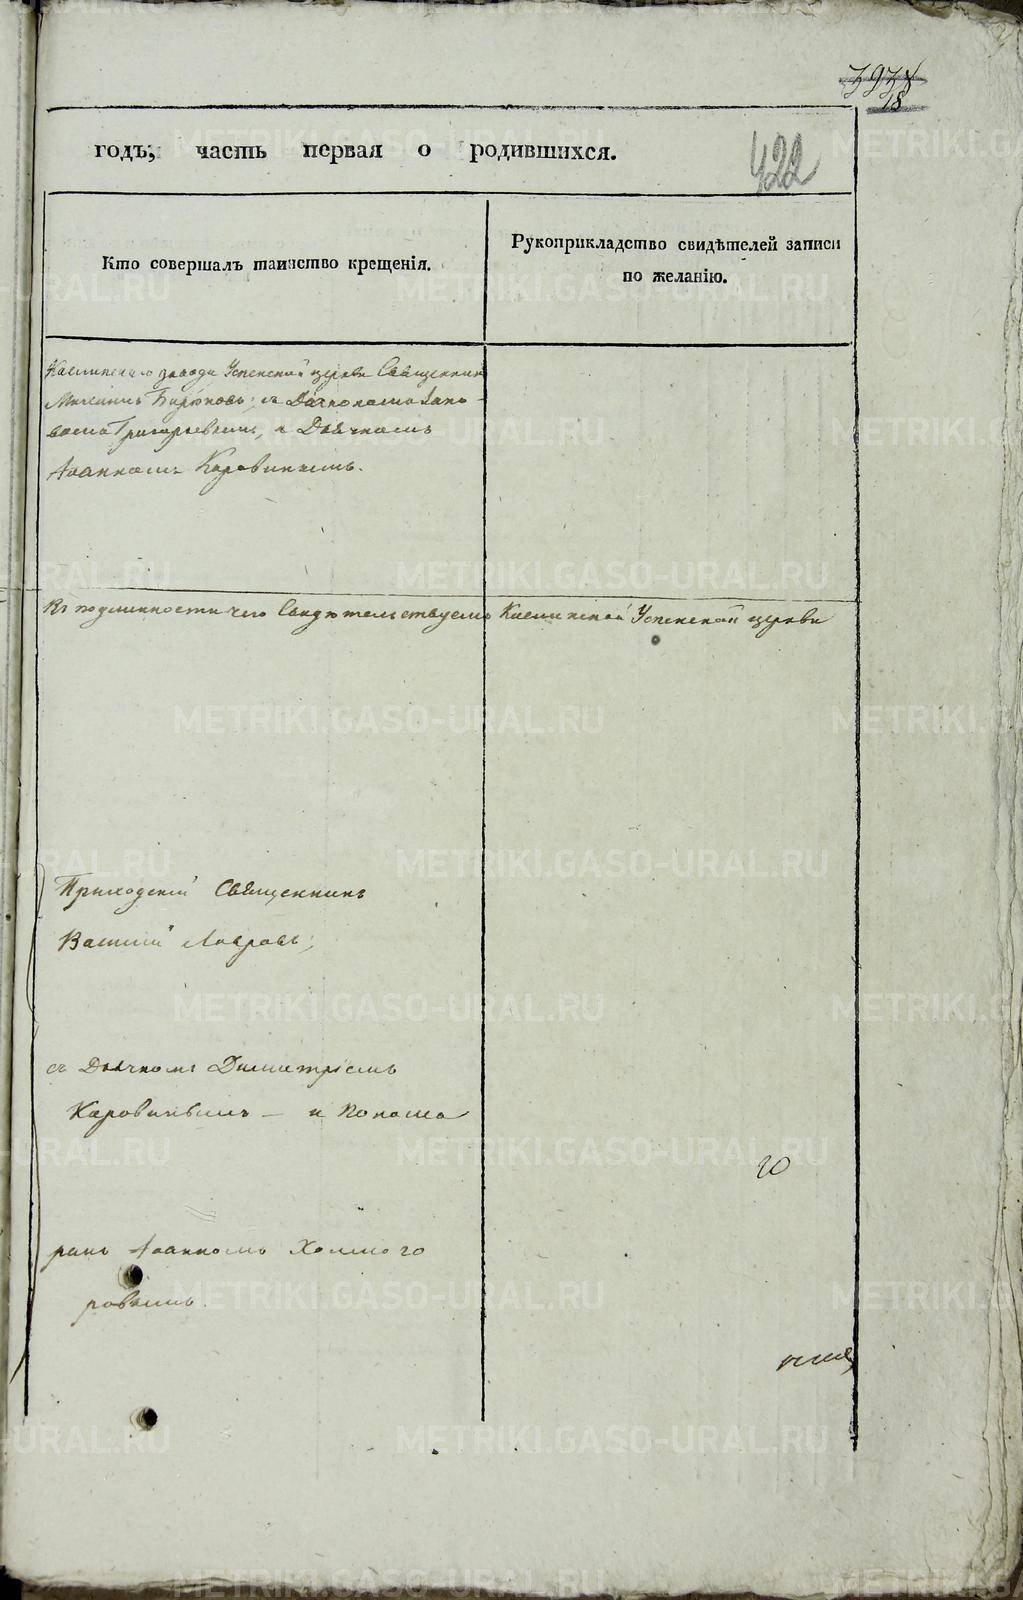 422
годъ, часть первая о родившихся.
Кто совершалъ таинство крещенія.
Рукоприкладство свидѣтелей записи
по желанію.
Каслинскаго завода Успенской церкви Священникъ
Бирюковъ, съ
Григорьевымъ, и Дьячкомъ
Іоанномъ Коровинымъ.
Въ подлинности чего Свидѣтельствуемъ Каслинской Успенской церкви
Приходскій Священникъ
Василій Лавровъ,
съ Дьячкомъ Димитріемъ
Коровинымъ – и Понома
го
ремъ Іоанномъ Холмого
ровымъ.
METRIKI.GASO-URAL.RU